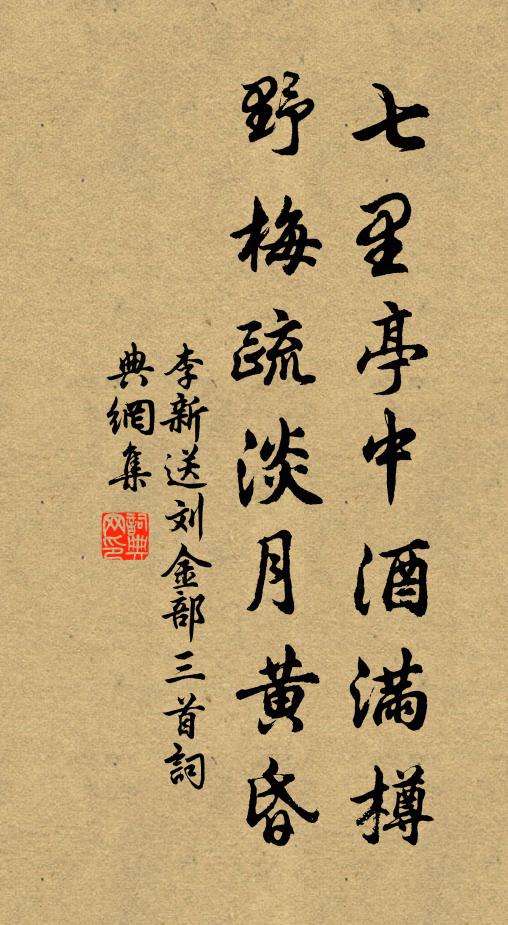 七里亭中酒满樽
野梅疏淡月黄昏
李新送刘金部三首詞
典網集
詞典
网印